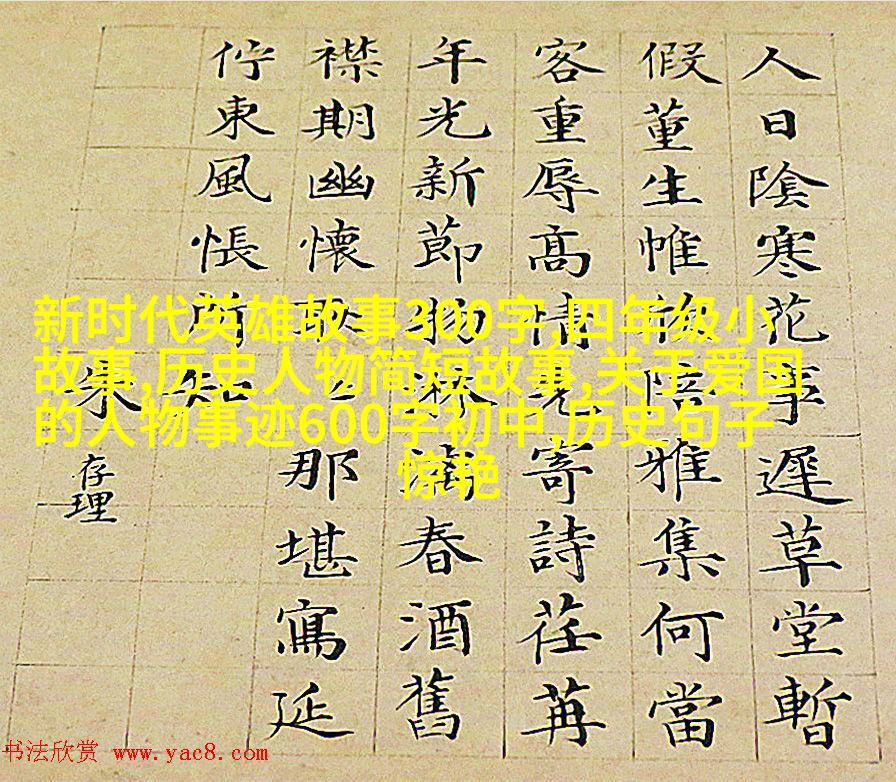 人日陰寒花事遲草堂暫
假董生帷陪雅集何當
客重辱高情先寄詩荏苒
年光新節物淋漓春酒舊
襟期幽懷那堪寫延
佇東風悵所知
朱存理
新时代英雄故事300字,四年级小
故事,历史人物简短故事,关于爱国
的人物事迹600字初中,历史句子
惊艳
书法欣赏 www.yac8.com